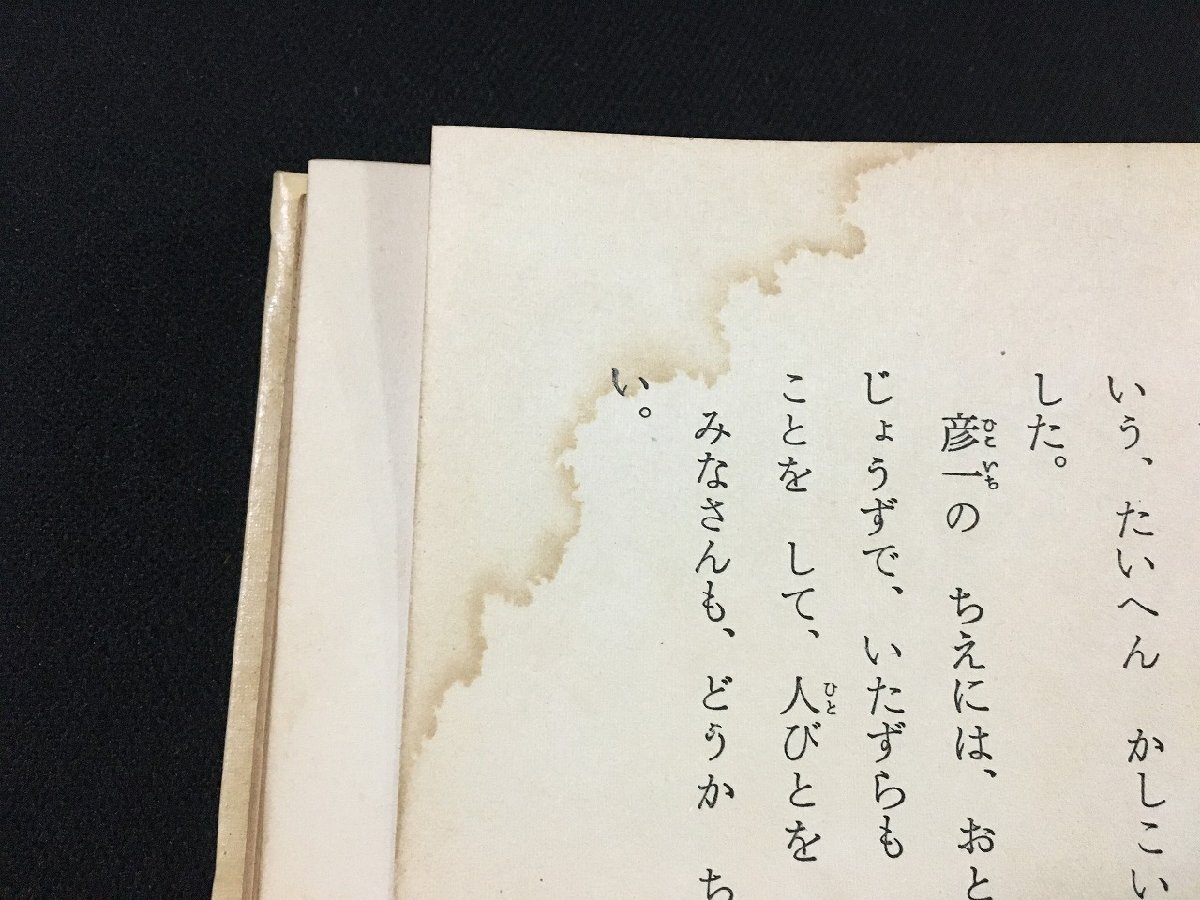 いう、たいへん かしこい
した。
彦一の ちえには、おと
じょうずで、いたずらも
ことを して、人びとを
みなさんも、どうか ち
い。